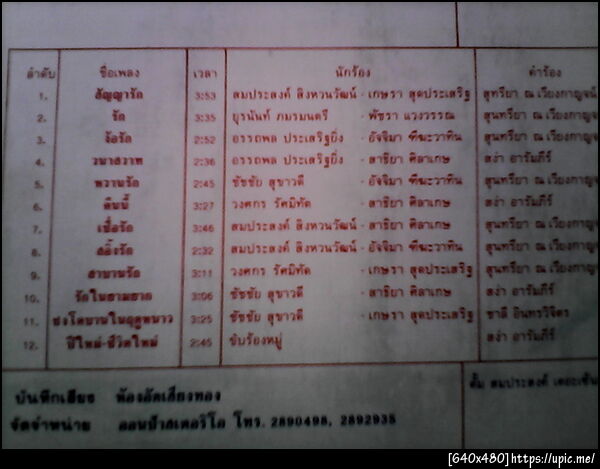 ลำดับ ชื่อเพลง เวลา นักร้อง คำร้อง
1. สัญญารัก 3:53 สมประสงค์ สิงหวนวัฒน์ - เกษรา สุดประเสริฐ สุทรียา ณ เวียงกาญจน์
2. รัก 3:35 ยุรนันท์ ภมรมนตรี - พัชรา แวงวรรณ สุนทรียา ณ เวียงกาญจน์
3. ง้อรัก 2:52 อรรถพล ประเสริฐยิ่ง - อัจจิมา ฑีฆะวาทิน สุนทรียา ณ เวียงกาญ
4. วนาสวาท 2:36 อรรถพล ประเสริฐยิ่ง - สาธิยา ศิลาเกษ สง่า อารัมภีร์
5. หวานรัก 2:45 ชัชชัย สุขาวดี - อัจจิมา ฑีฆะวาทิน สุนทรียา ณ เวียงกาญ
6. คืนนี้ 3:27 วงศกร รัศมิทัต - สาธิยา ศิลาเกษ สง่า อารัมภีร์
7. เชื่อรัก 3:46 สมประสงค์ สิงหวนวัฒน์ - สาธิยา ศิลาเกษ สุนทรียา ณ เวียงกาญ
8. 2:32 สมประสงค์ สิงหวนวัฒน์ - อัจจิมา ฑีฆะวาทิน สุนทรียา ณ เวียงกาญ
9. สาบานรัก 3:11 วงศกร รัศมิทัต - เกษรา สุดประเสริฐ สุนทรียา ณ เวียงกาญ
10. 3:06 ชัชชัย สุขาวดี - สาธิยา ศิลาเกษ สง่า อารัมภีร์
11. 3:25 ชัชชัย สุขาวดี - เกษรา สุดประเสริฐ ชาลี อินทรวิจิตร
12. ปีใหม่-ชีวิตใหม่ 2:45 ขับร้องหมู่ สง่า อารัมภีร์
บันทึกเสียง ห้องอัดเสียงทอง
จัดจำหน่าย ออนป้าสเตอริโอ โทร. 2890498, 2892935
ตั้ม สมประสงค์
[640x480]https://upic.me/